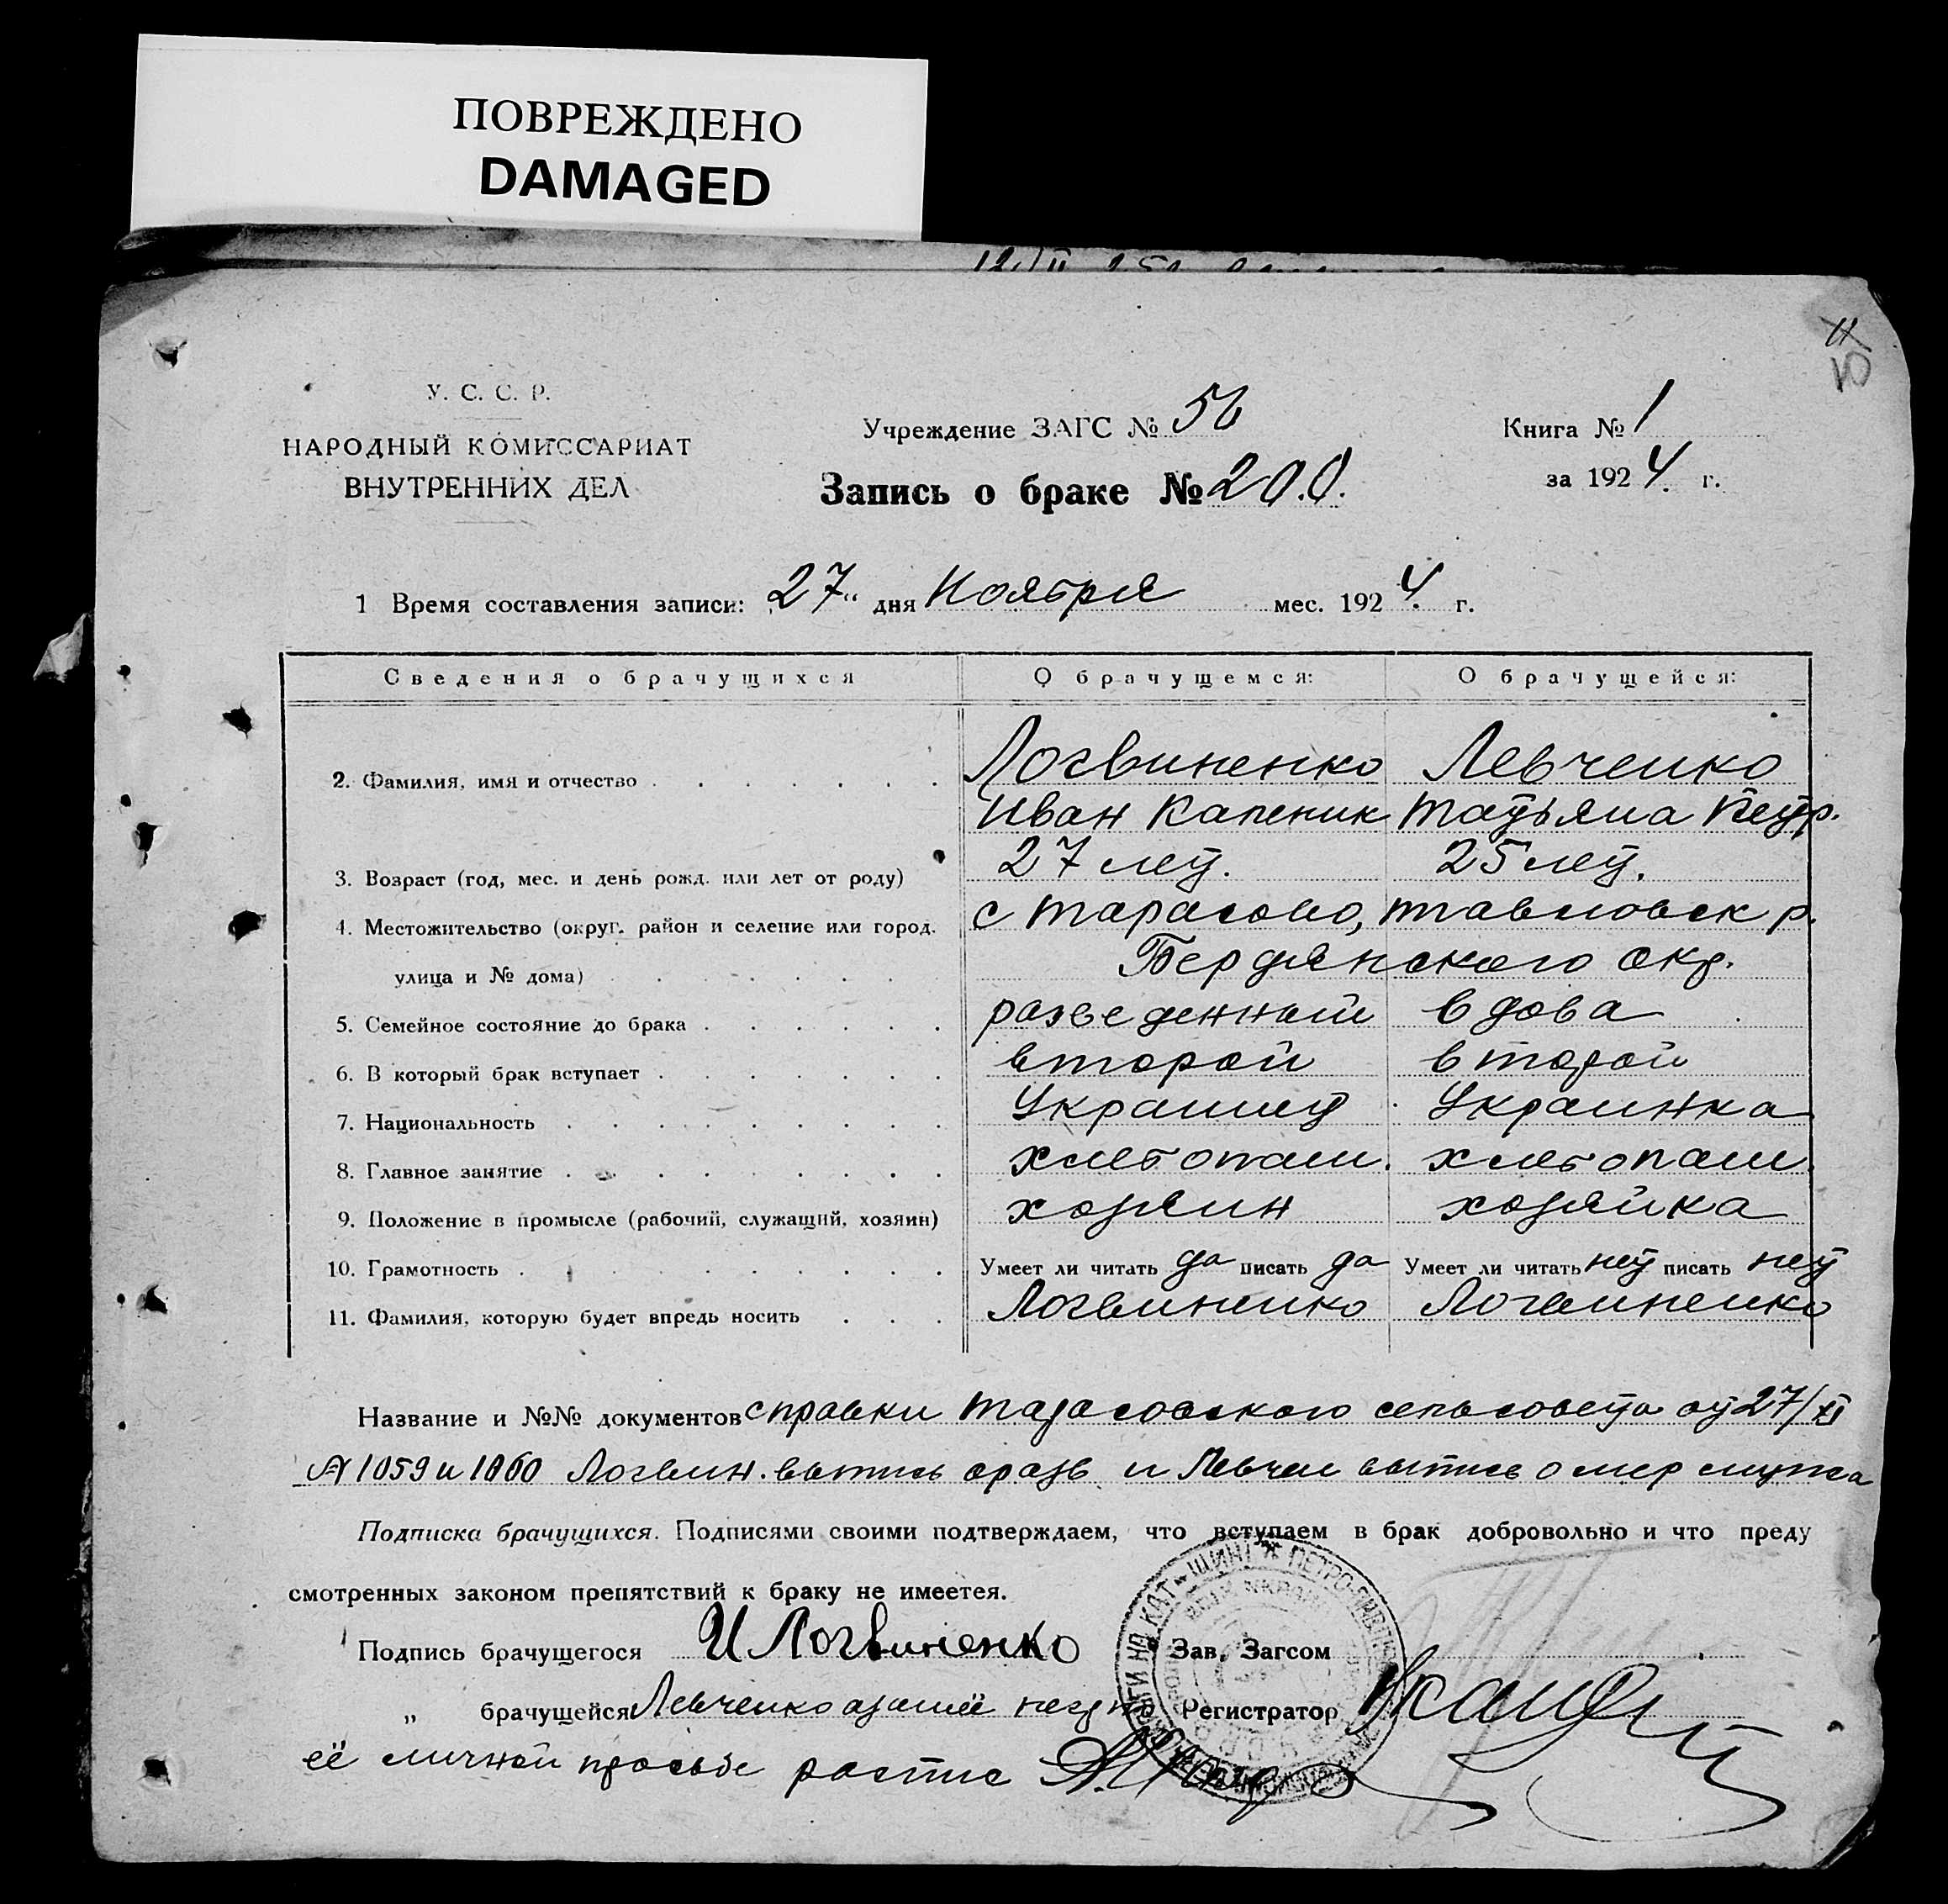 ПОВРЕЖДЕНО
DAMAGED
У. С. С. Р.
НАРОДНЫЙ КОМИССАРИАТ
ВНУТРЕННИХ ДЕЛ
Учреждение ЗАГС № 56
Запись о браке № 200.
Книга № 1
за 1924. г.
11
10
1 Время составления записи: „27“ дня Ноября мес. 1924. г.
Сведения о брачущихся О брачущемся: О брачущейся:
2. Фамилия, имя и отчество Логвиненко Левченко
Иван Капеник Татьяна Петр.
3. Возраст (год, мес. и день рожд. или лет от роду) 27 лет. 25 лет.
4. Местожительство (округ. район и селение или город. с Тарасово, Павловск р.
улица и № дома) Бердянского окр.
5. Семейное состояние до брака разведенный вдова
6. В который брак вступает второй второй
7. Национальность Украинец Украинка
8. Главное занятие хлебопаш. хлебопаш.
9. Положение в промысле (рабочий, служащий, хозяин) хозяин хозяйка
10. Грамотность Умеет ли читать да писать да Умеет ли читать нет писать нет
11. Фамилия, которую будет впредь носить Логвиненко Логвиненко
Название и №№ документов справки Тарасовского сельсовета от 27/XI
№ 1059 и 1060 Логвин. выпись о разв и Левчен выпись о мер мужа
Подписка брачущихся. Подписями своими подтверждаем, что вступаем в брак добровольно и что преду
смотренных законом препятствий к браку не имеется.
Подпись брачущегося И Логвиненко Зав. Загсом
„ брачущейся Левченко а за неё негр по Регистратор
её личной просьбе роспис